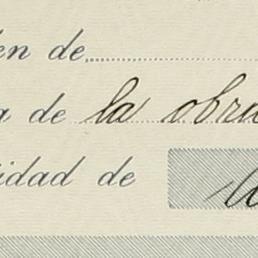 en de
a de la obra
idad de